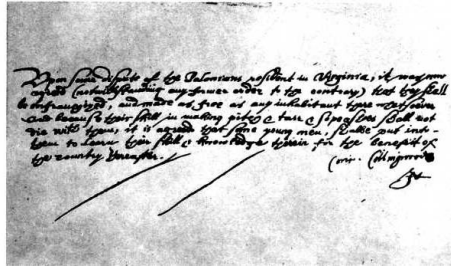 Upon some dispute of the Polonians resident in Virginia, it was now
agreed (notwithstanding any former order to the contrary) that they shall
be enfranchized, and made as free as any inhabitant there whatsoever
And because their skill in making pitch & tarr & sopeashes shall not
die with them, it is agreed that some young men, shalbe put unto
them to learn their skill & knowledge therein for the benefit of
the country hereafter.
Collingwood